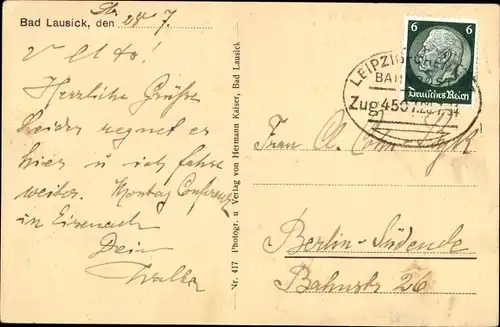 Bad Lausick, den 28/7.
Herzliche Grüße
leider regnet es
hier u ich fahre
weiter. Montag Conferenz
in Eisenach
Dein
Walter
Nr. 417 Photogr. u Verlag von Hermann Kaiser, Bad Lausick
6 6
Deutsches Reich
LEIPZIG
BAH
Zug 450
Frau
Berlin-Südende
Bahnstr 26